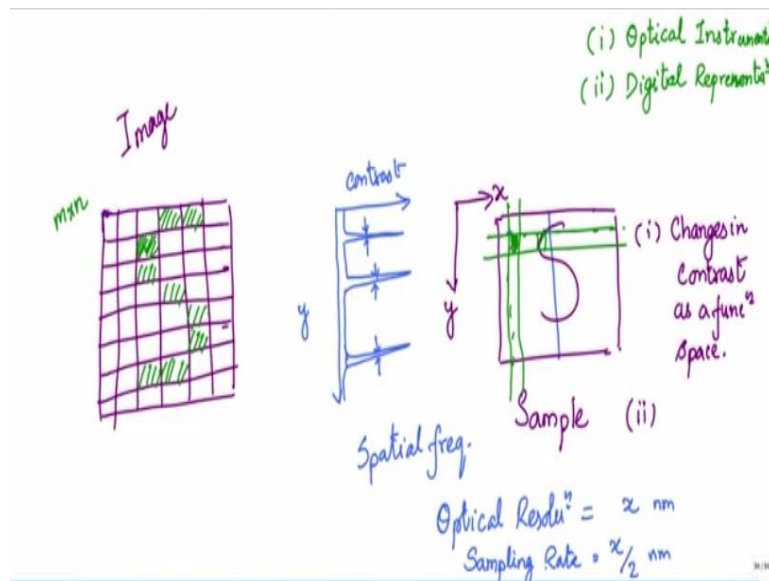 (i) Optical Instrument
(ii) Digital Representaⁿ
Image
mxn
contrast
y
x
y
(i) Changes in
Contrast
as a funcⁿ
Space.
Sample (ii)
Spatial freq.
Optical Resoluⁿ = x nm
Sampling Rate = x/2 nm